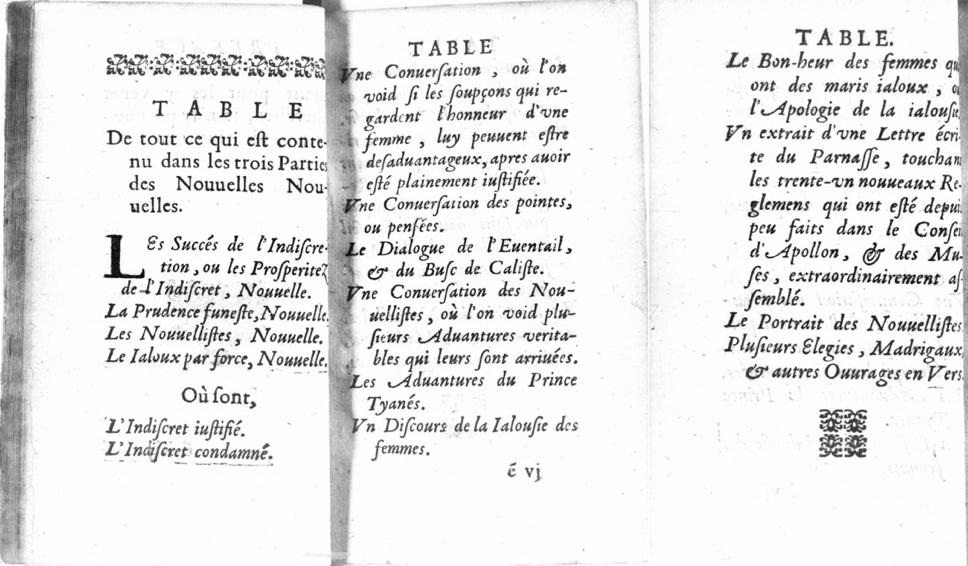 TABLE
De tout ce qui eſt conte-
nu dans les trois Parties
des Nouuelles Nou-
uelles.
LEs Succés de l'Indiſcre-
tion, ou les Proſperitez
de l'Indiſcret, Nouuelle.
La Prudence funeſte, Nouuelle.
Les Nouuelliſtes, Nouuelle.
Le Ialoux par force, Nouuelle.
Où ſont,
L'Indiſcret iuſtifié.
L'Indiſcret condamné.
TABLE
Vne Conuerſation, où l'on
void ſi les ſoupçons qui re-
gardent l'honneur d'vne
femme, luy peuuent eſtre
deſaduantageux, apres auoir
eſté plainement iuſtifiée.
Vne Conuerſation des pointes,
ou penſées.
Le Dialogue de l'Euentail,
& du Buſc de Caliſte.
Vne Conuerſation des Nou-
uelliſtes, où l'on void plu-
ſieurs Aduantures verita-
bles qui leurs ſont arriuées.
Les Aduantures du Prince
Tyanés.
Vn Diſcours de la Ialouſie des
femmes.
é vj
TABLE.
Le Bon-heur des femmes qu
ont des maris ialoux, o
l'Apologie de la ialouſie.
Vn extrait d'vne Lettre écri-
te du Parnaſſe, touchan
les trente-vn nouueaux Re-
glemens qui ont eſté depuis
peu faits dans le Conſei
d'Apollon, & des Mu-
ſes, extraordinairement aſ-
ſemblé.
Le Portrait des Nouuelliſtes.
Pluſieurs Elegies, Madrigaux,
& autres Ouurages en Vers.